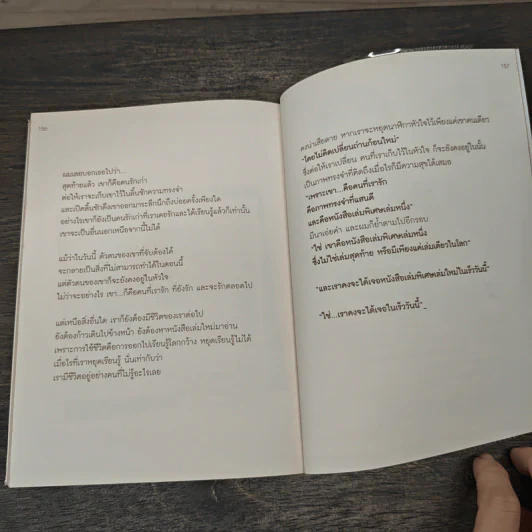 156
ผมเลยบอกเธอไปว่า...
สุดท้ายแล้ว เขาก็คือคนรักเก่า
ต่อให้เราจะเก็บเขาไว้ในลิ้นชักความทรงจำ
และเปิดลิ้นชักดึงเขาออกมาระลึกนึกถึงบ่อยครั้งเพียงใด
อย่างไรเขาก็ยังเป็นคนรักเก่าที่เราเคยรักและได้เรียนรู้แล้วก็เท่านั้น
เขาจะเป็นอื่นนอกเหนือจากนี้ไม่ได้
แม้ว่าในวันนี้ ตัวตนของเขาที่จับต้องได้
จะกลายเป็นสิ่งที่ไม่สามารถทำได้ในตอนนี้
แต่ตัวตนของเขาก็จะยังคงอยู่ในหัวใจ
ไม่ว่าจะอย่างไร เขา...ก็คือคนที่เรารัก ที่ยังรัก และจะรักตลอดไป
แต่เหนือสิ่งอื่นใด เราก็ยังต้องมีชีวิตของเราต่อไป
ยังต้องก้าวเดินไปข้างหน้า ยังต้องหาหนังสือเล่มใหม่มาอ่าน
เพราะการใช้ชีวิตคือการออกไปเรียนรู้โลกกว้าง หยุดเรียนรู้ไม่ได้
เมื่อไรที่เราหยุดเรียนรู้ นั่นเท่ากับว่า
เรามีชีวิตอยู่อย่างคนที่ไม่รู้อะไรเลย
157
คงน่าเสียดาย หากเราจะหยุดนาฬิกาหัวใจไว้เพียงแค่เขาคนเดียว
"โดยไม่คิดเปลี่ยนถ่านก้อนใหม่"
ซึ่งต่อให้เราเปลี่ยน คนที่เราเก็บไว้ในหัวใจ ก็จะยังคงอยู่ในนั้น
เป็นภาพทรงจำที่คิดถึงเมื่อไรก็มีความสุขได้เสมอ
"เพราะเขา...คือคนที่เรารัก
คือภาพทรงจำที่แสนดี
และคือหนังสือเล่มพิเศษเล่มหนึ่ง"
มีนาเอ่ยคำ และผมก็ย้ำตามไปอีกรอบ
"ใช่ เขาคือหนังสือเล่มพิเศษเล่มหนึ่ง
ซึ่งไม่ใช่เล่มสุดท้าย หรือมีเพียงแค่เล่มเดียวในโลก"
"และเราคงจะได้เจอหนังสือเล่มพิเศษเล่มใหม่ในเร็ววันนี้"
"ใช่...เราคงจะได้เจอในเร็ววันนี้"_